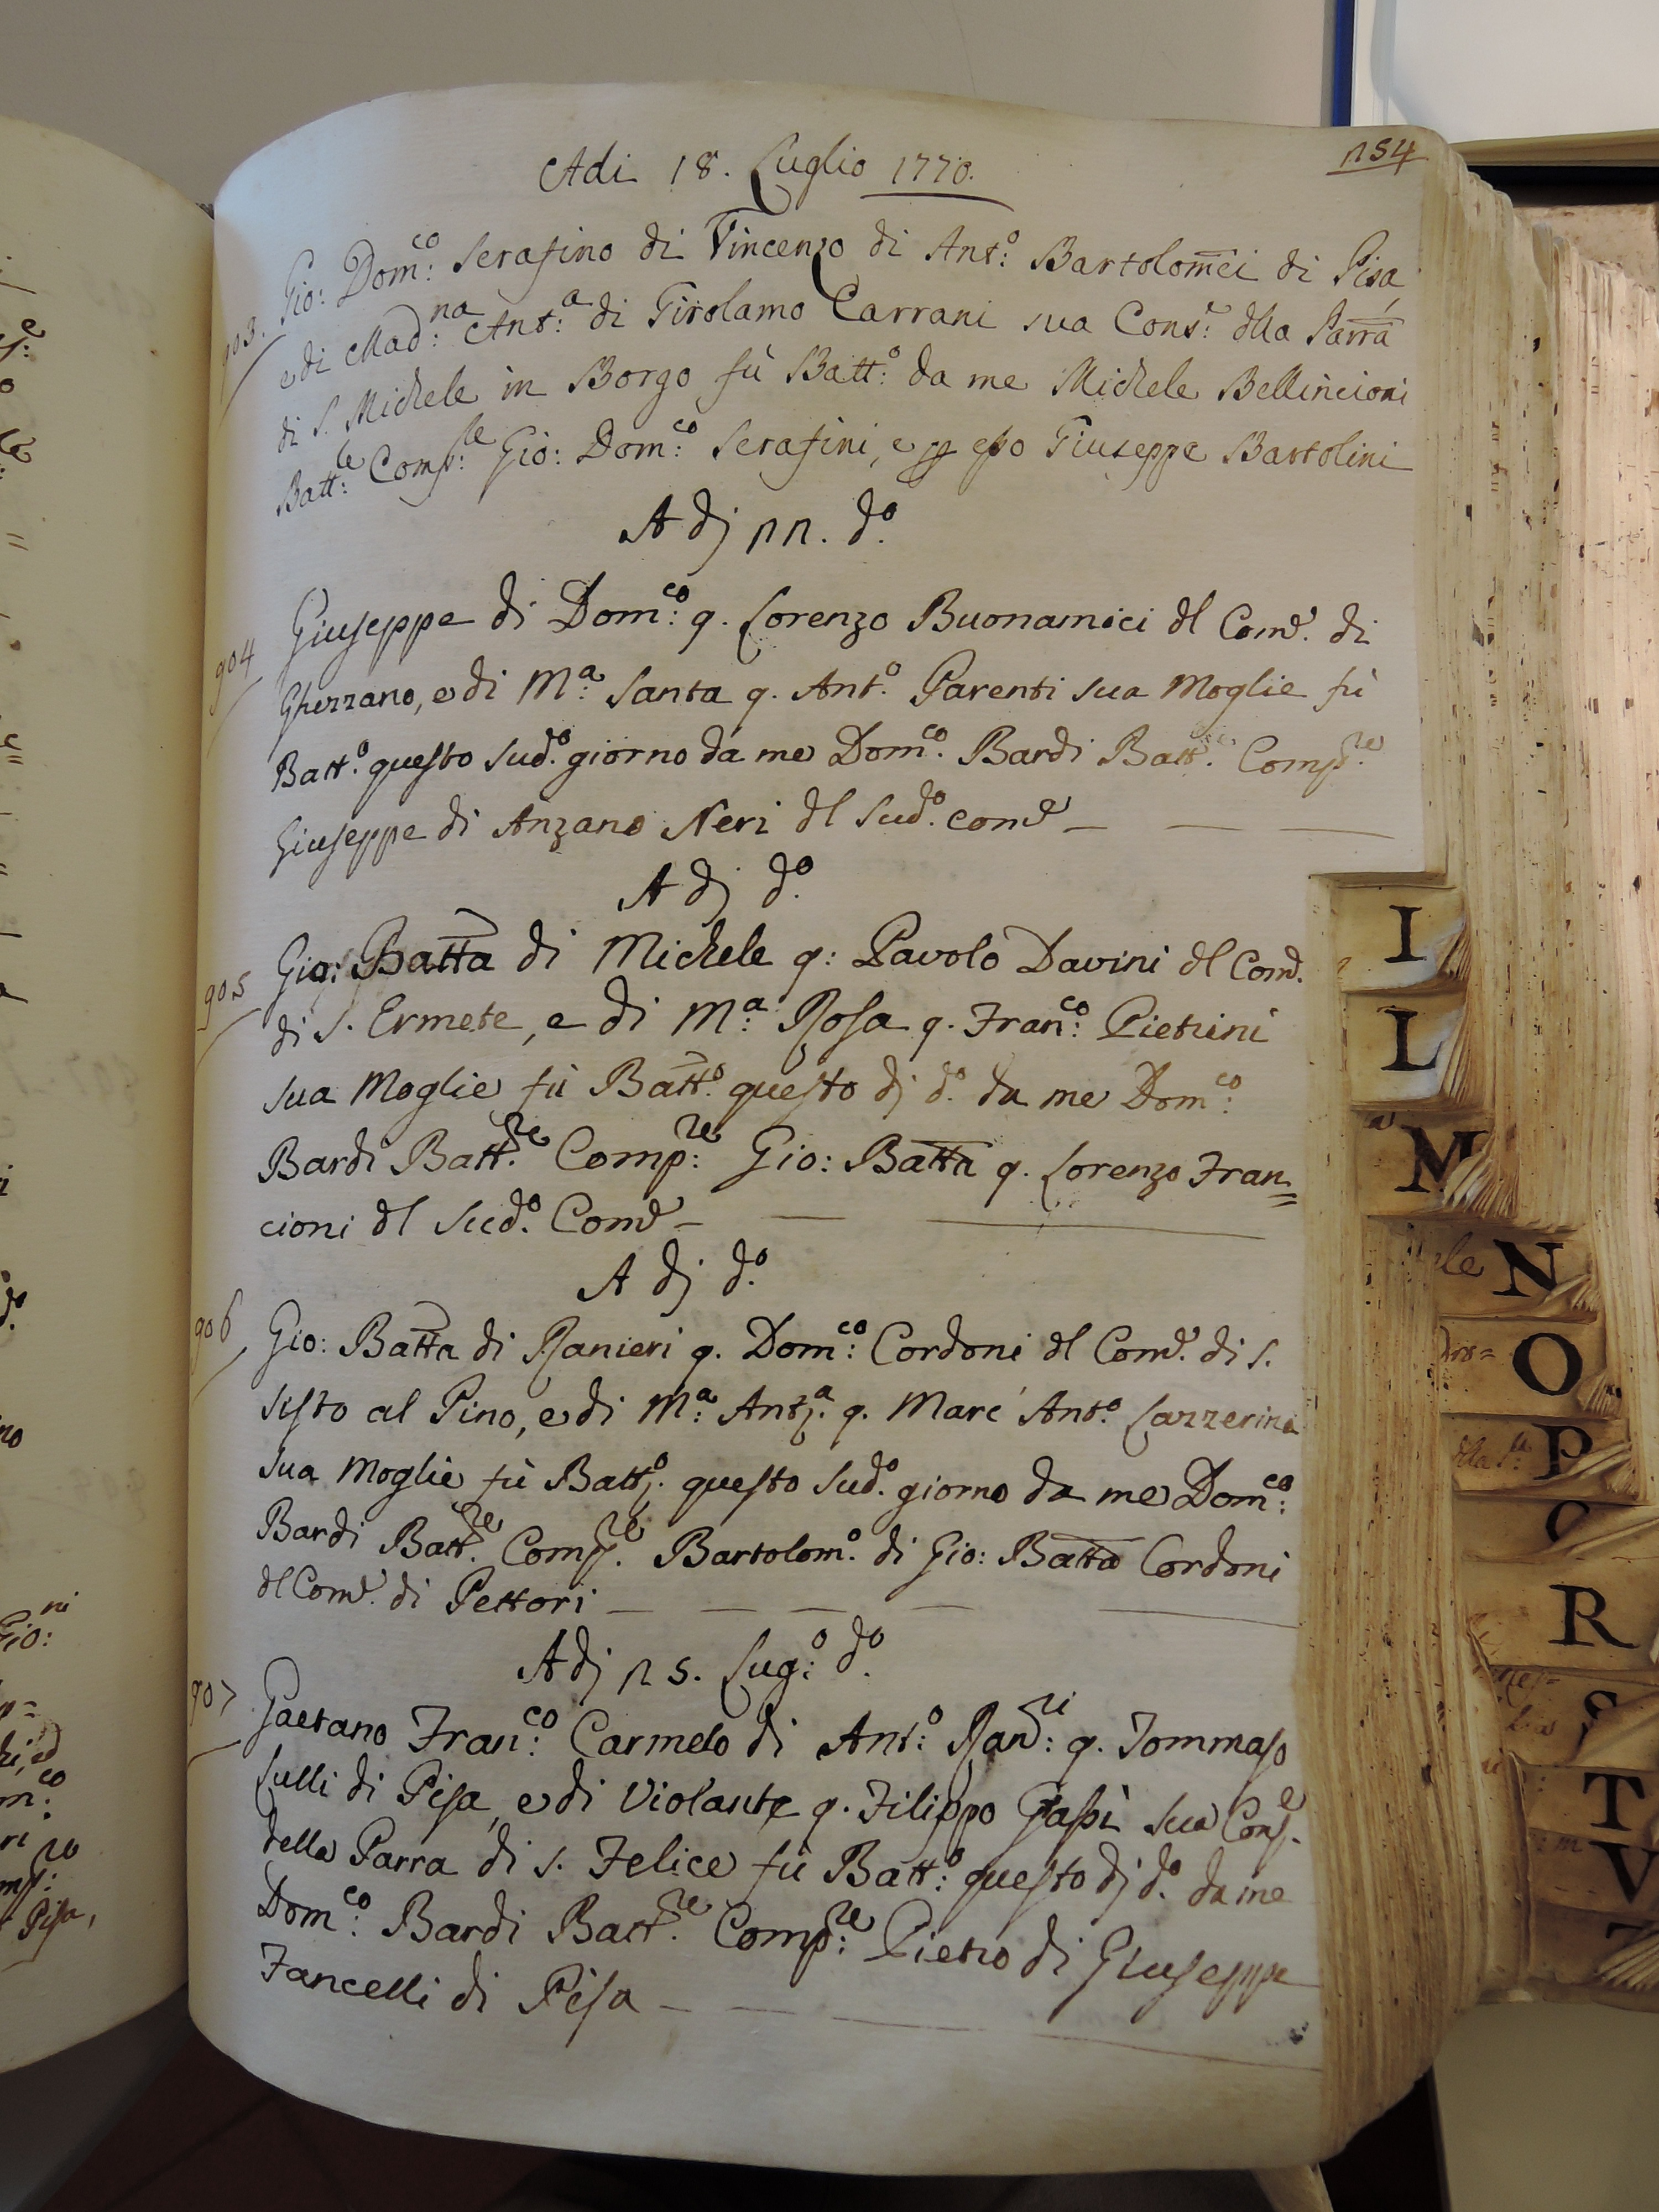 Adi 18. Luglio 1770.
154
903. Gio: Dom:co Serafino di Vincenzo di Ant:o Bartolom̅ei di Pisa,
e di Mad:na Ant:a di Girolamo Carrani sua Cons:e dlla Parra
di S. Michele in Borgo fù Batt:o da me Michele Bellincioni
Batt:e Comp:re Gio: Dom:co Serafini, e p esso Giuseppe Bartolini
A dj 22. do.
904 Giuseppe di Dom:co q. Lorenzo Buonamici dl Come. di
Ghezzano, e di M:a Santa q. Ant.o Parenti sua Moglie fù
Batt.o questo Sud.o giorno da me Dom.co Bardi Batt.e Comp.re
Giuseppe di Anzano Neri dl Sud.o come
A dj do.
905 Gio: Batta di Michele q: Pavolo Davini dl Come.
di S. Ermete, e di M:a Rosa q. Fran:co Pietrini
sua Moglie fù Batt.o questo dj do. da me Dom:co
Bardi Batt.re Comp:re Gio: Batta q. Lorenzo Fran=
cioni dl Sud.o Come
A dj do.
906 Gio: Batta di Ranieri q. Dom:co Cordoni dl Come. di S.
Sisto al Pino, e di M:a Ant.a q. Marc' Ant.o Lazzerini
Sua Moglie fù Batt.o questo Sud.o giorno da me Dom:co
Bardi Batt.re Comp.re Bartolom.o di Gio: Batta Cordoni
dl Come. di Pettori
A dj 25. Lug:o do.
907 Gaetano Fran:co Carmelo di Ant:o Ran:ri q. Tommaso
Lulli di Pisa, e di Violante q. Filippo Gassi Sua Cons.e
della Parra di S. Felice fù Batt:o questo dj do. da me
Dom:co Bardi Batt.re Comp:re Pietro di Giuseppe
Fancelli di Pisa
I
L
M
N
O
P
R
S
T
V